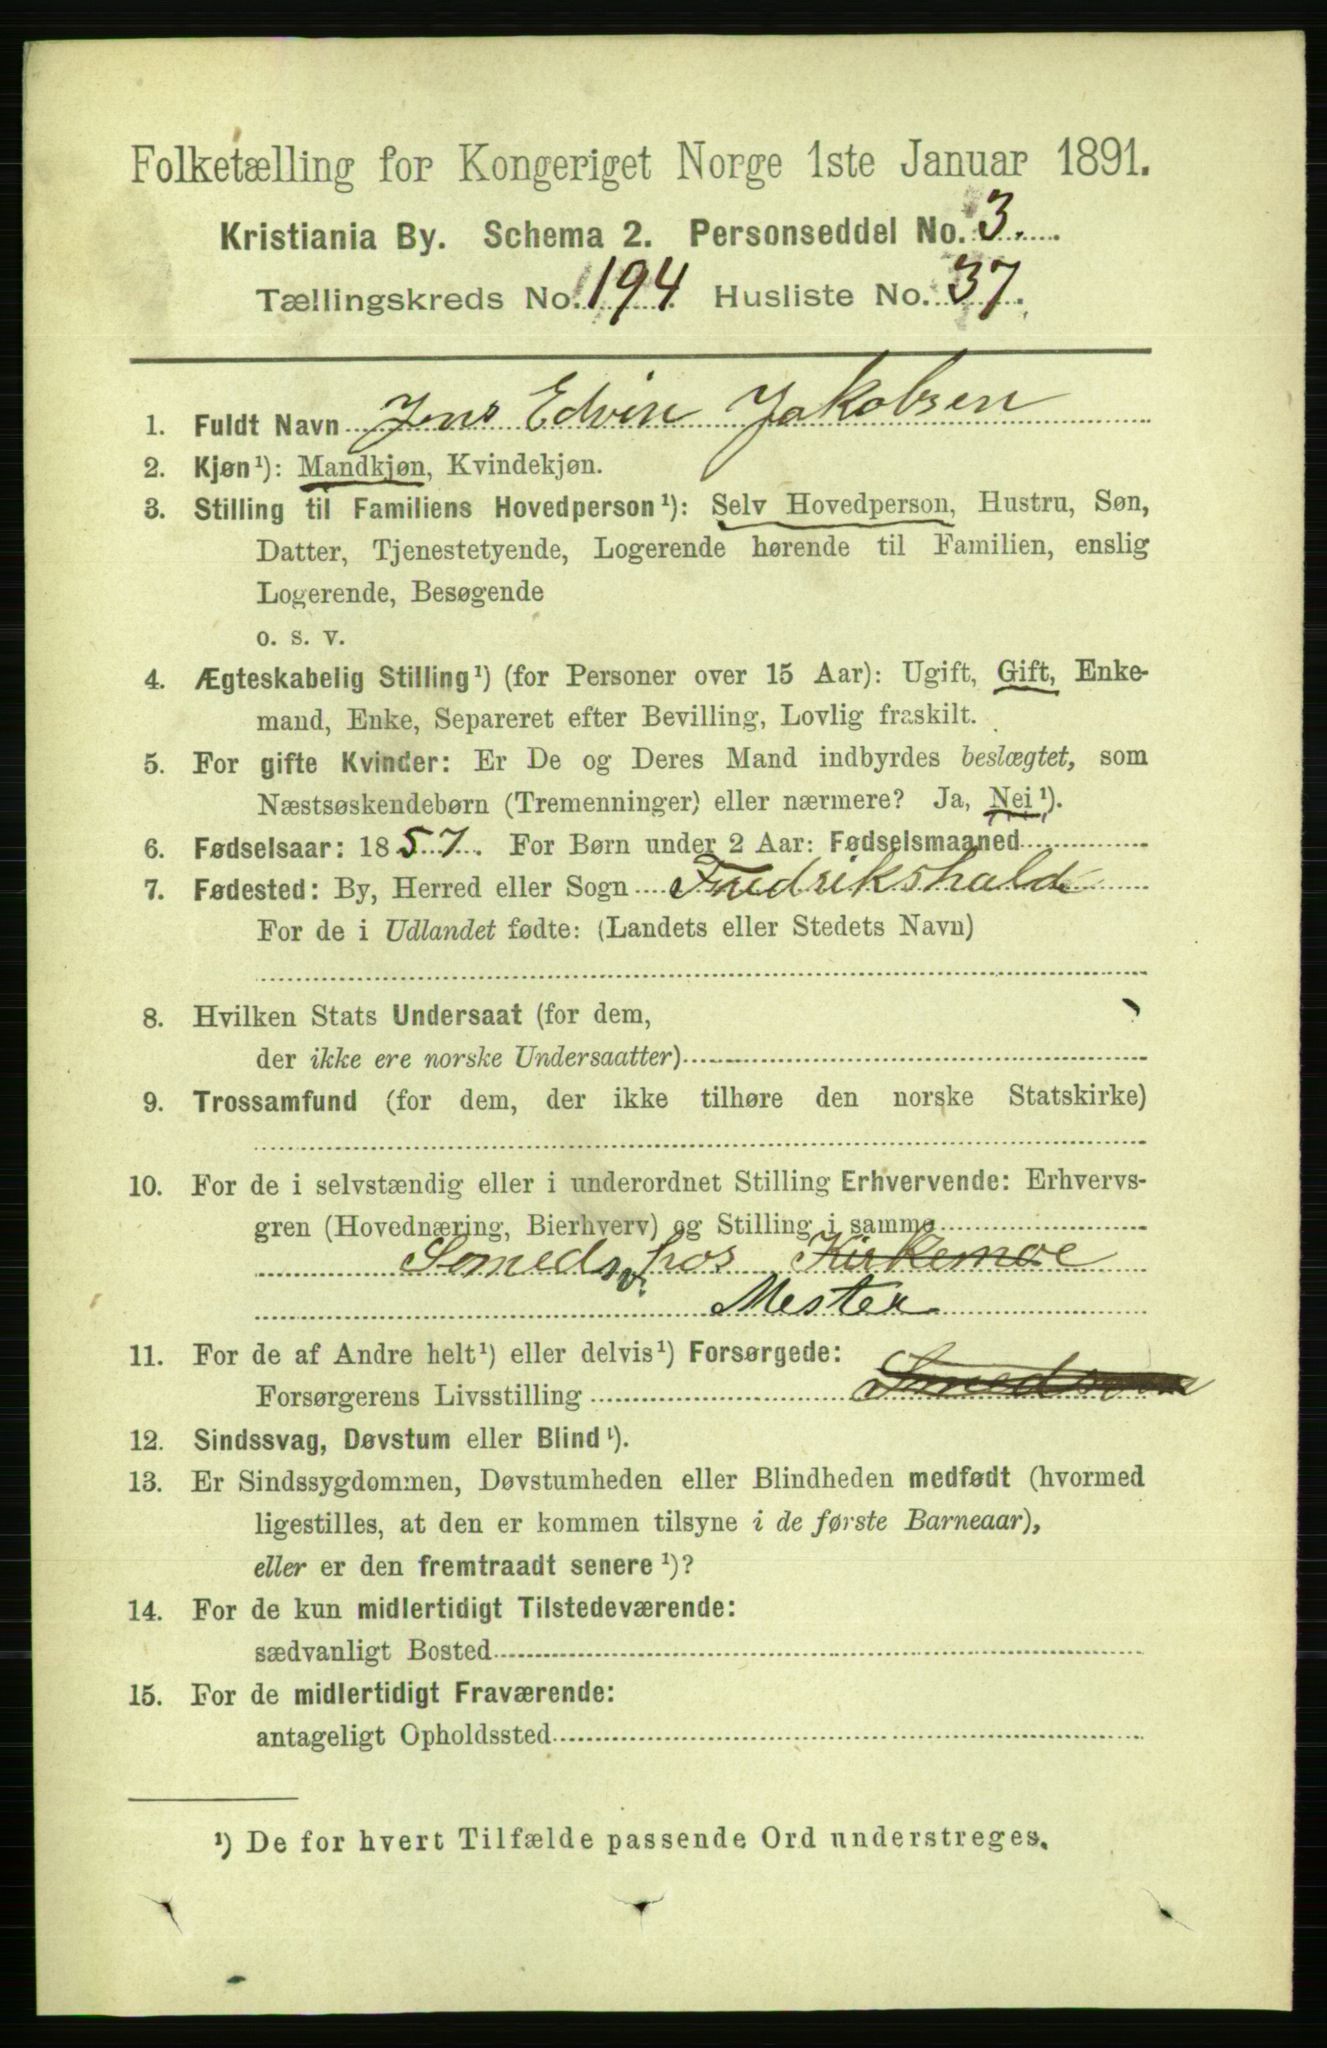 Folketælling for Kongeriget Norge 1ste Januar 1891.
Kristiania By. Schema 2. Personseddel No. 3.
Tællingskreds No. 194. Husliste No. 37.
1. Fuldt Navn Jens Edvin Jakobsen
2. Kjøn¹): Mandkjøn, Kvindekjøn.
3. Stilling til Familiens Hovedperson¹): Selv Hovedperson, Hustru, Søn,
Datter, Tjenestetyende, Logerende hørende til Familien, enslig
Logerende, Besøgende
o. s. v.
4. Ægteskabelig Stilling¹) (for Personer over 15 Aar): Ugift, Gift, Enke-
mand, Enke, Separeret efter Bevilling, Lovlig fraskilt.
5. For gifte Kvinder: Er De og Deres Mand indbyrdes beslægtet, som
Næstsøskendebørn (Tremenninger) eller nærmere? Ja, Nei¹).
6. Fødselsaar: 1857. For Børn under 2 Aar: Fødselsmaaned
7. Fødested: By, Herred eller Sogn Fredrikshald
For de i Udlandet fødte: (Landets eller Stedets Navn)
8. Hvilken Stats Undersaat (for dem,
der ikke ere norske Undersaatter)
9. Trossamfund (for dem, der ikke tilhøre den norske Statskirke)
10. For de i selvstændig eller i underordnet Stilling Erhvervende: Erhvervs-
gren (Hovednæring, Bierhverv) og Stilling i samme
Smedsv. hos Kirkemoe
Mester
11. For de af Andre helt¹) eller delvis¹) Forsørgede:
Forsørgerens Livsstilling
12. Sindssvag, Døvstum eller Blind¹).
13. Er Sindssygdommen, Døvstumheden eller Blindheden medfødt (hvormed
ligestilles, at den er kommen tilsyne i de første Barneaar),
eller er den fremtraadt senere¹)?
14. For de kun midlertidigt Tilstedeværende:
sædvanligt Bosted
15. For de midlertidigt Fraværende:
antageligt Opholdssted
¹) De for hvert Tilfælde passende Ord understreges.